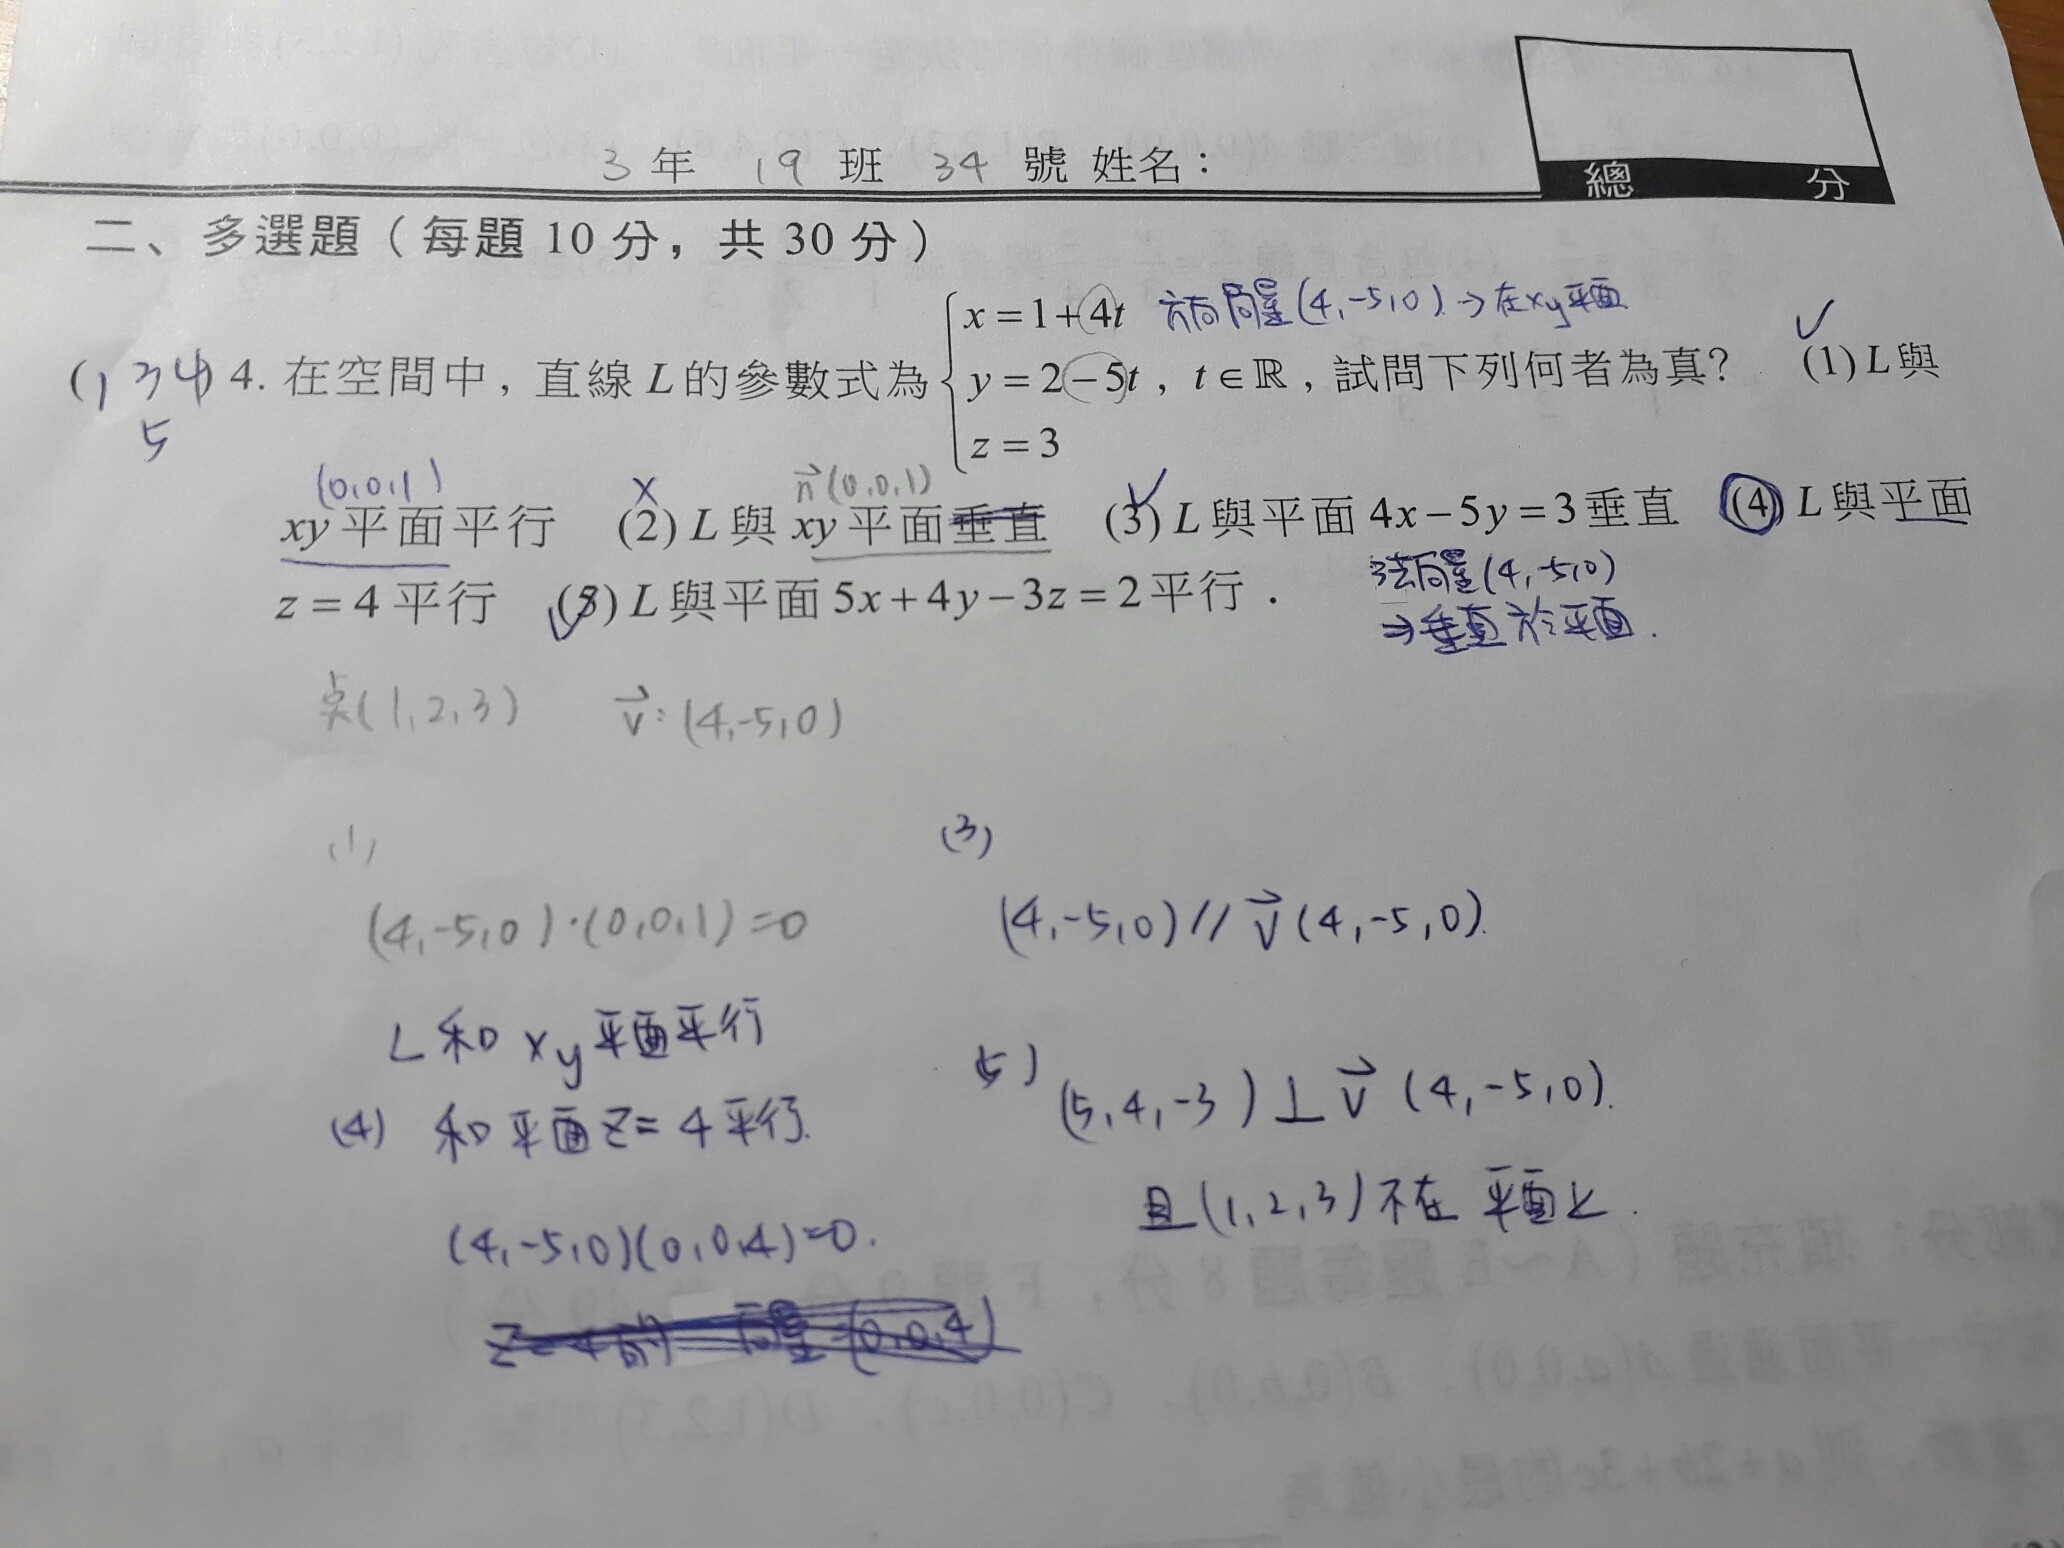 3 年 19 班 34 號 姓名：
總 分
二、多選題（每題 10 分，共 30 分）
x = 1 + 4t 方向向量(4,-5,0) → 在xy平面
(1 3 4) 4. 在空間中，直線 L 的參數式為 y = 2 − 5t，t ∈ ℝ，試問下列何者為真？ (1) L 與
5
z = 3
(0,0,1) x n⃗(0,0,1)
xy 平面平行 (2) L 與 xy 平面垂直 (3) L 與平面 4x − 5y = 3 垂直 (4) L 與平面
z = 4 平行 (5) L 與平面 5x + 4y − 3z = 2 平行．
法向量(4,-5,0)
⇒垂直於平面.
点(1,2,3) v⃗:(4,-5,0)
(1)
(4,-5,0)·(0,0,1)=0
L 和 xy 平面平行
(4) 和平面 z=4 平行.
(4,-5,0)(0,0,4)=0.
(3)
(4,-5,0) // v⃗(4,-5,0).
(5)
(5,4,-3) ⊥ v⃗ (4,-5,0).
且(1,2,3)不在 平面上.